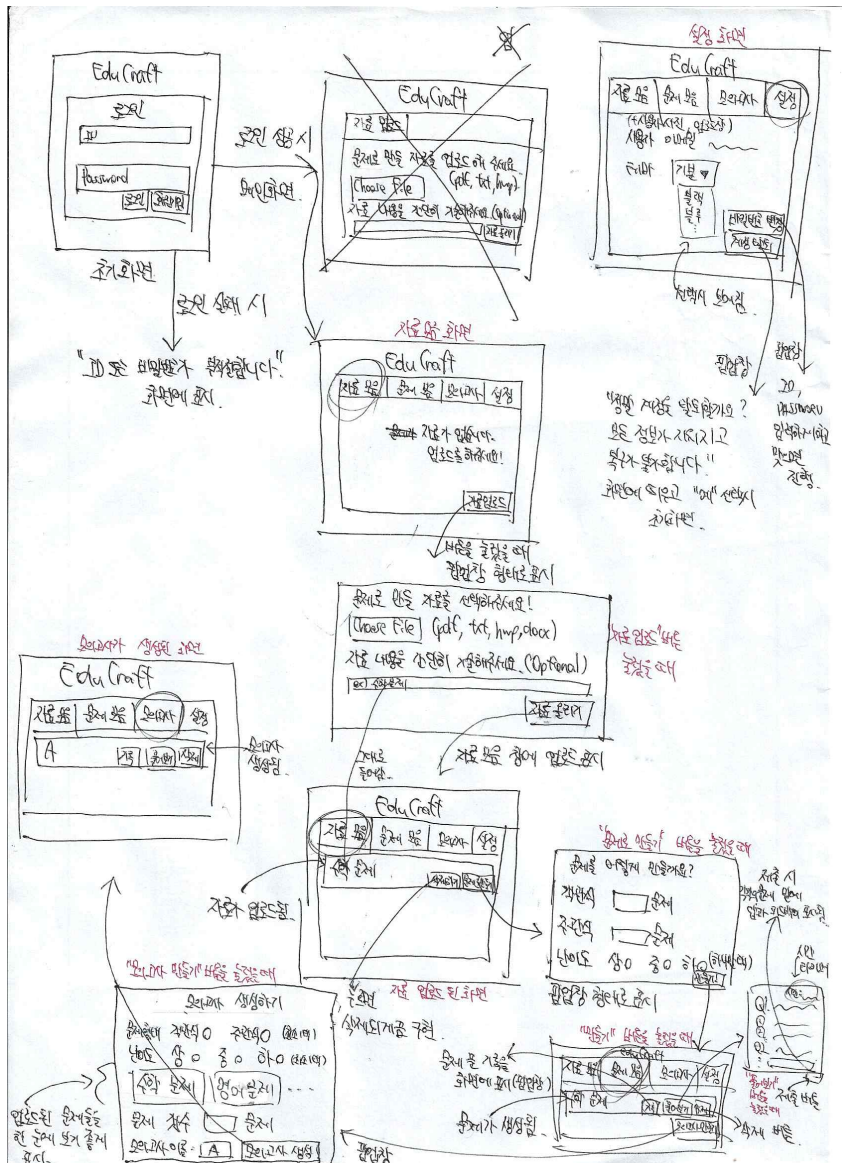 EduCraft
로그인
ID
Password
로그인
회원가입
초기화면
로그인 성공 시
메인화면
로그인 실패 시
"ID 또는 비밀번호가 부적절합니다."
화면에 표시.
EduCraft
자료 업로드
문제로 만들 자료를 업로드 해 주세요.
(pdf, txt, hwp)
Choose File
자료 내용을 간단히 기술해주세요 (Optional)
자료 올리기
설정 화면
EduCraft
자료 모음 문제 모음 모의고사 설정
(+사용자 사진 업로드창)
사용자 이메일
테마 기본
블랙
블루
비밀번호 변경
계정 탈퇴
선택시 보여짐
팝업창
"정말 계정을 탈퇴할까요?
모든 정보가 사라지고
복구가 불가합니다."
화면에 띄우고 "예" 선택시
초기화면
팝업창
ID,
PASSWORD
입력하게 하고
맞으면
진행.
자료 모음 화면
EduCraft
자료 모음 문제 모음 모의고사 설정
자료가 없습니다.
업로드를 해주세요!
자료업로드
버튼을 눌렀을 때
팝업창 형태로 표시
문제로 만들 자료를 선택해주세요!
Choose File (pdf, txt, hwp, docx)
자료 내용을 간단히 기술해주세요. (Optional)
ex) 수학문제
자료 올리기
"자료 업로드" 버튼
눌렀을 때
그대로
들어감.
자료 모음 창에 업로드 표시
모의고사가 생성된 화면
EduCraft
자료 모음 문제 모음 모의고사 설정
A 기록 풀어보기 삭제
모의고사
생성됨.
EduCraft
자료 모음 문제 모음 모의고사 설정
수학 문제
삭제하기 문제로 만들기
자료가 업로드됨.
자료 업로드 된 화면
누르면
삭제되게끔 구현.
"문제로 만들기" 버튼을 눌렀을 때
문제를 어떻게 만들까요?
객관식 문제
주관식 문제
난이도 상 중 하 (하나만 선택)
만들기
팝업창 형태로 표시
제출 시
답과
시간
타이머
Q1.
Q2.
"풀어보기"
버튼을
눌렀을때
제출 버튼
"만들기" 버튼을 눌렀을 때
EduCraft
자료 모음 문제 모음 모의고사 설정
수학 문제
기록 풀어보기 삭제
모의고사 만들기
문제 푼 기록을
화면에 표시 (팝업창)
문제가 생성됨.
삭제 버튼
"모의고사 만들기" 버튼을 눌렀을 때
모의고사 생성하기
문제형태 객관식 주관식
난이도 상 중 하
수학 문제 영어 문제 ...
문제 갯수 문제
모의고사 이름: A 모의고사 생성
업로드된 문제들을
한 눈에 보기 좋게
표시.
팝업창